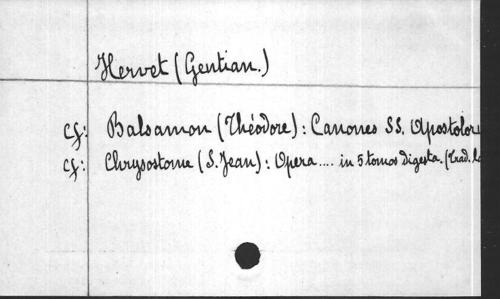 Hervet (Gentian.)
cf: Balsamon (Théodore): Canones SS. Apostolor
cf: Chrysostome (S. Jean): Opera .... in 5 tomos digesta. (Trad. la